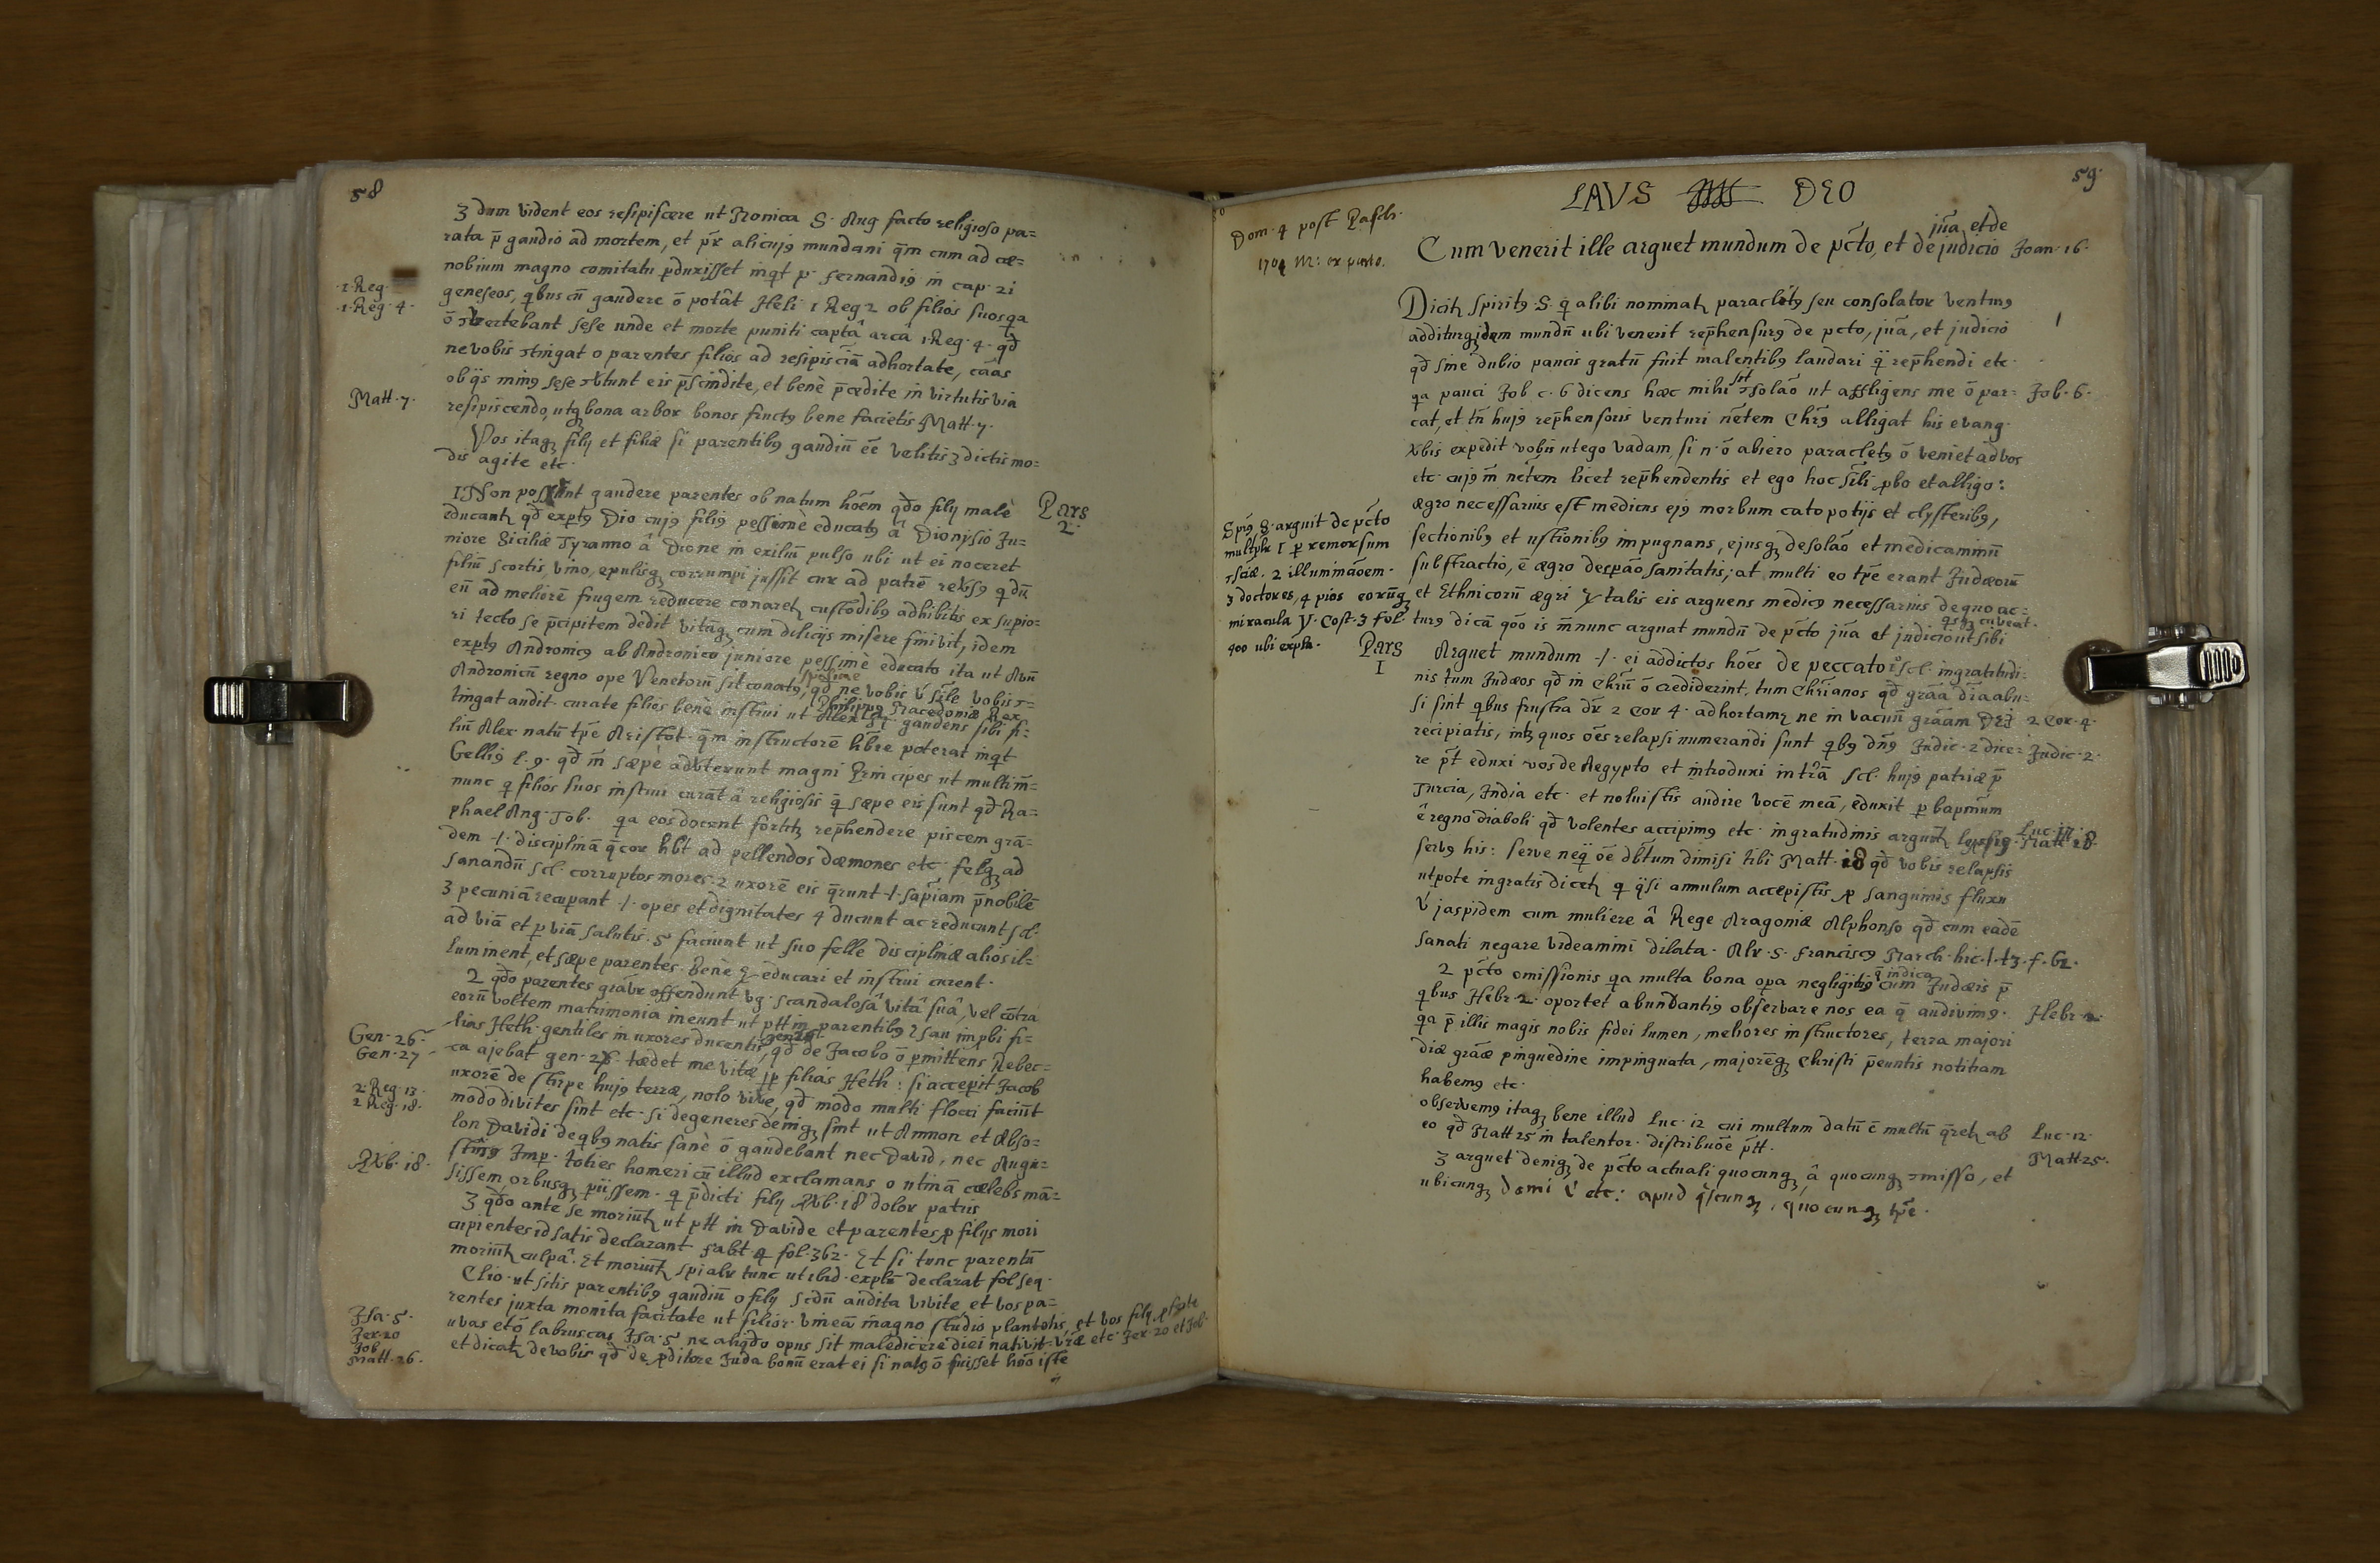 58
3 dum vident eos resipiscere ut Monica S. Aug facto religioso pa=
rata p̄ gaudio ad mortem, et p̄r alicujꝰ mundani q̄m cum ad cœ=
nobium magno comitatu ꝑduxisset inqt p. Fernandiꝰ in cap. 21
1. Reg.
geneseos, qbus cū gaudere ō potât Heli 1 Reg 2 ob filios suos qa
1. Reg. 4.
ō vertebant sese unde et morte puniti captâ arcâ 1. Reg. 4. qd̄
ne vobis ↄtingat o parentes filios ad resipisciā adhortate, cāas
ob qs minꝰ sese ↄvtunt eis p̄scindite, et benè p̄cedite in virtutis via
Matt. 7.
resipiscendo, utqꝫ bona arbor bonos fructꝰ bene facietis Matt. 7.
Vos itaqꝫ filij et filiæ si parentibꝰ gaudiū ēē velitis 3 dictis mo=
dis agite etc.
Pars
2.
1 Non possunt gaudere parentes ob natum hōem qd̄o filij malè
educantꝫ qd̄ exptꝰ Dio cujꝰ filiꝰ pessimè educatꝰ â Dionysio Ju=
niore Siciliæ Tyranno â Dione in exiliū pulso ubi ut ei noceret
filiū scortis, vino, epulisqꝫ corrumpi jussit cur ad patrē reversꝰ q dū
eū ad meliorē frugem reducere conaretꝫ custodibꝰ adhibitis ex supio=
ri tecto se p̄cipitem dedit vitāqꝫ cum delicijs misere finivit, idem
exptꝰ Andronicꝰ ab Andronico juniore pessimè educato ita ut Avū
Andronicū regno ope Venetorū sit conatꝰ, qd̄ ne vobis v̄ sīle vobis ↄ=
tingat audit. curate filios benè instrui ut
Philippꝰ Macedoniæ Rex
gaudens sibi fi=
liū Alex natū tp̄e Aristot. q̄m instructorē hb̄re poterat inqt
Gelliꝰ l. 9. qd̄ m̄ sæpè advterunt magni Principes ut multi m̄=
nunc q filios suos instrui curāt â religiosis q̄ sæpe eis sunt qd̄ Ra=
phael Ang. Tob. qa eos docent fortitꝫ rep̄hendere piscem grā=
dem -/- disciplinā q̄ cor hb̄t ad pellendos dæmones etc. felqꝫ ad
sanandū scl. corruptos mores. 2 uxorē eis q̄runt -/- sapiam p̄nobilē
3 pecuniā recupant -/- opes et dignitates 4 ducunt ac reducunt scl.
ad viā et ꝑ viā salutis. 5 faciunt ut suo felle disciplinæ alios il=
luminent, et sæpe parentes. Benè gͦ educari et instrui curent.
2 qd̄o parentes gravr offendunt vg. scandalosâ vitâ suâ, vel cōtra
eorū voltem matrimonia ineunt ut ptt in parentibꝰ Esau impbi fi=
Gen. 26
Gen. 27
lias Heth. gentiles in uxores ducentis, qd̄ de Jacobo ō ꝑmittens Rebec=
ca ajebat gen. 27. tædet me vitæ ꝓp filias Heth: si acceperit Jacob
uxorē de stirpe hujꝰ terræ, nolo vivẽ, qd̄ modo multi flocci faciūt
2 Reg. 13.
2 Reg. 18.
modo divites sint etc. si degeneres deniqꝫ sint ut Amnon et Abso=
lon Davidi de qbꝰ natis sanè ō gaudebant nec David, nec Augu=
stinꝰ Imp. toties homericū illud exclamans o utinā cælebs mā=
Pvb. 18.
sissem, orbusqꝫ piissem. q p̄dicti filij Pvb. 18 dolor patris
3 qd̄o ante se moriūtꝫ ut ptt in Davide et parentes ꝓ filijs mori
cupientes id satis declarant fabt. 4 fol. 362. Et si tunc parentū
moriūtꝫ culpâ. Et moriūtꝫ spialr tunc ut ibid. explū declarat fol seq.
Clio. ut sitis parentibꝰ gaudiū o filij scdū audita vivite, et vos pa=
rentes juxta monita facitate ut filior. vineā magno studio plantetis, et vos filij ꝓferte
Isa. 5.
uvas et ō labruscas Isa. 5 ne aliqd̄o opus sit maledicere diei nativit. vr̄æ etc. Jer. 20 et Job.
Jer. 20
Job
Matt. 26.
et dicatꝫ de vobis qd̄ de ꝓditore Juda bonū erat ei si natꝰ ō fuisset hōo iste
59.
LAVS DEO
Dom. 4 post Pasch.
1704 M: ex parte.
jūa et de
Cum venerit ille arguet mundum de pc̄to, et de judicio Joan. 16.
Dicitꝫ Spiritꝰ S. q̄ alibi nominatꝫ paracletꝰ seu consolator ventꝰ
additurqꝫ idem mundū ubi venerit rep̄hensurꝰ de pcto, jūa, et judicio
qd̄ sine dubio paucis gratū fuit malentibꝰ laudari q̄ rep̄hendi etc.
qa pauci Job c. 6 dicens hæc mihi sit ↄsolāo ut affligens me ō par= Job. 6.
cat, et tn̄ hujꝰ rep̄hensoris venturi nētem Chrꝰ alligat his evang.
vbis expedit vobis ut ego vadam, si n. ō abiero paracletꝰ ō veniet ad vos
etc. cujꝰ m̄ nētem licet rep̄hendentis et ego hoc sīli pbo et alligo:
ægro necessarius est medicus ejꝰ morbum catopotijs et clysteribꝰ,
Sp̄iꝰ S. arguit de pc̄to
multplr 1 ꝑ remorsum
ↄsciæ. 2 illumināoem.
3 doctores, 4 pios eorūqꝫ
miracula V. Cost. 3 fol.
400 ubi expla.
sectionibꝰ et ustionibꝰ impugnans, ejusqꝫ desolāo et medicaminū
substractio, ē ægro despāo sanitatis; at multi eo tp̄e erant Judæorū
et Ethnicorū ægri gͦ talis eis arguens medicꝰ necessarius de quo ac=
turꝰ dicā qōo is m̄nunc arguat mundū de pc̄to jūa et judicio ut sibi
qsqꝫ caveat.
Pars
1
Arguet mundum -/- ei addictos hōes de peccato 1ͦ scl. ingratitudi=
nis tum Judæos qd̄ in Chrū ō crediderint, tum Chriānos qd̄ grāa dīa abu=
si sint qbus frustra dr̄ 2 Cor 4. adhortamꝰ ne in vacuū grāam DEI 2 Cor. 4.
recipiatis, intꝫ quos ōēs relapsi numerandi sunt qbꝰ dn̄ꝰ Judic. 2 dice= Judic. 2.
re p̄t eduxi vos de Aegypto et introduxi in tr̄ā scl. hujꝰ patriæ p̄
Turcia, India etc. et noluistis audire vocē meā, eduxit ꝑ bapmum
ê regno diaboli qd̄ volentes accipimꝰ etc. ingratudinis arguūt
Matt. 18.
servꝰ his: serve neq̄ ōē dbtum dimisi tibi Matt. 18 qd̄ vobis relapsis
utpote ingratis dicetꝫ q qsi annulum accepistis ꝓ sanguinis fluxu
v̄ jaspidem cum muliere â Rege Aragoniæ Alphonso qd̄ cum eadē
sanati negare videamini dilata. Alr. S. Franciscꝰ March. hic. 1. t. 3. f. 62.
2 pc̄to omissionis qa multa bona opa negligitis cum Judæis p̄
qbus Hebr. 2. oportet abundantiꝰ observare nos ea q̄ audivimꝰ. Hebr. 2.
qa p̄ illis magis nobis fidei lumen, meliores instructores, terra majori
diæ grāæ pinguedine impinguata, majorēqꝫ Christi p̄euntis notitiam
habemꝰ etc.
observemꝰ itaqꝫ bene illud Luc. 12 cui multum datū ē multū q̄retꝫ ab Luc. 12.
eo qd̄ Matt 25 in talentor. distribuōe ptt.
Matt 25.
3 arguet deniqꝫ de pc̄to actuali quocunqꝫ, â quocunqꝫ ↄmisso, et
ubicunqꝫ domi v̄ etc: apud qscunqꝫ, quocunqꝫ tp̄e.